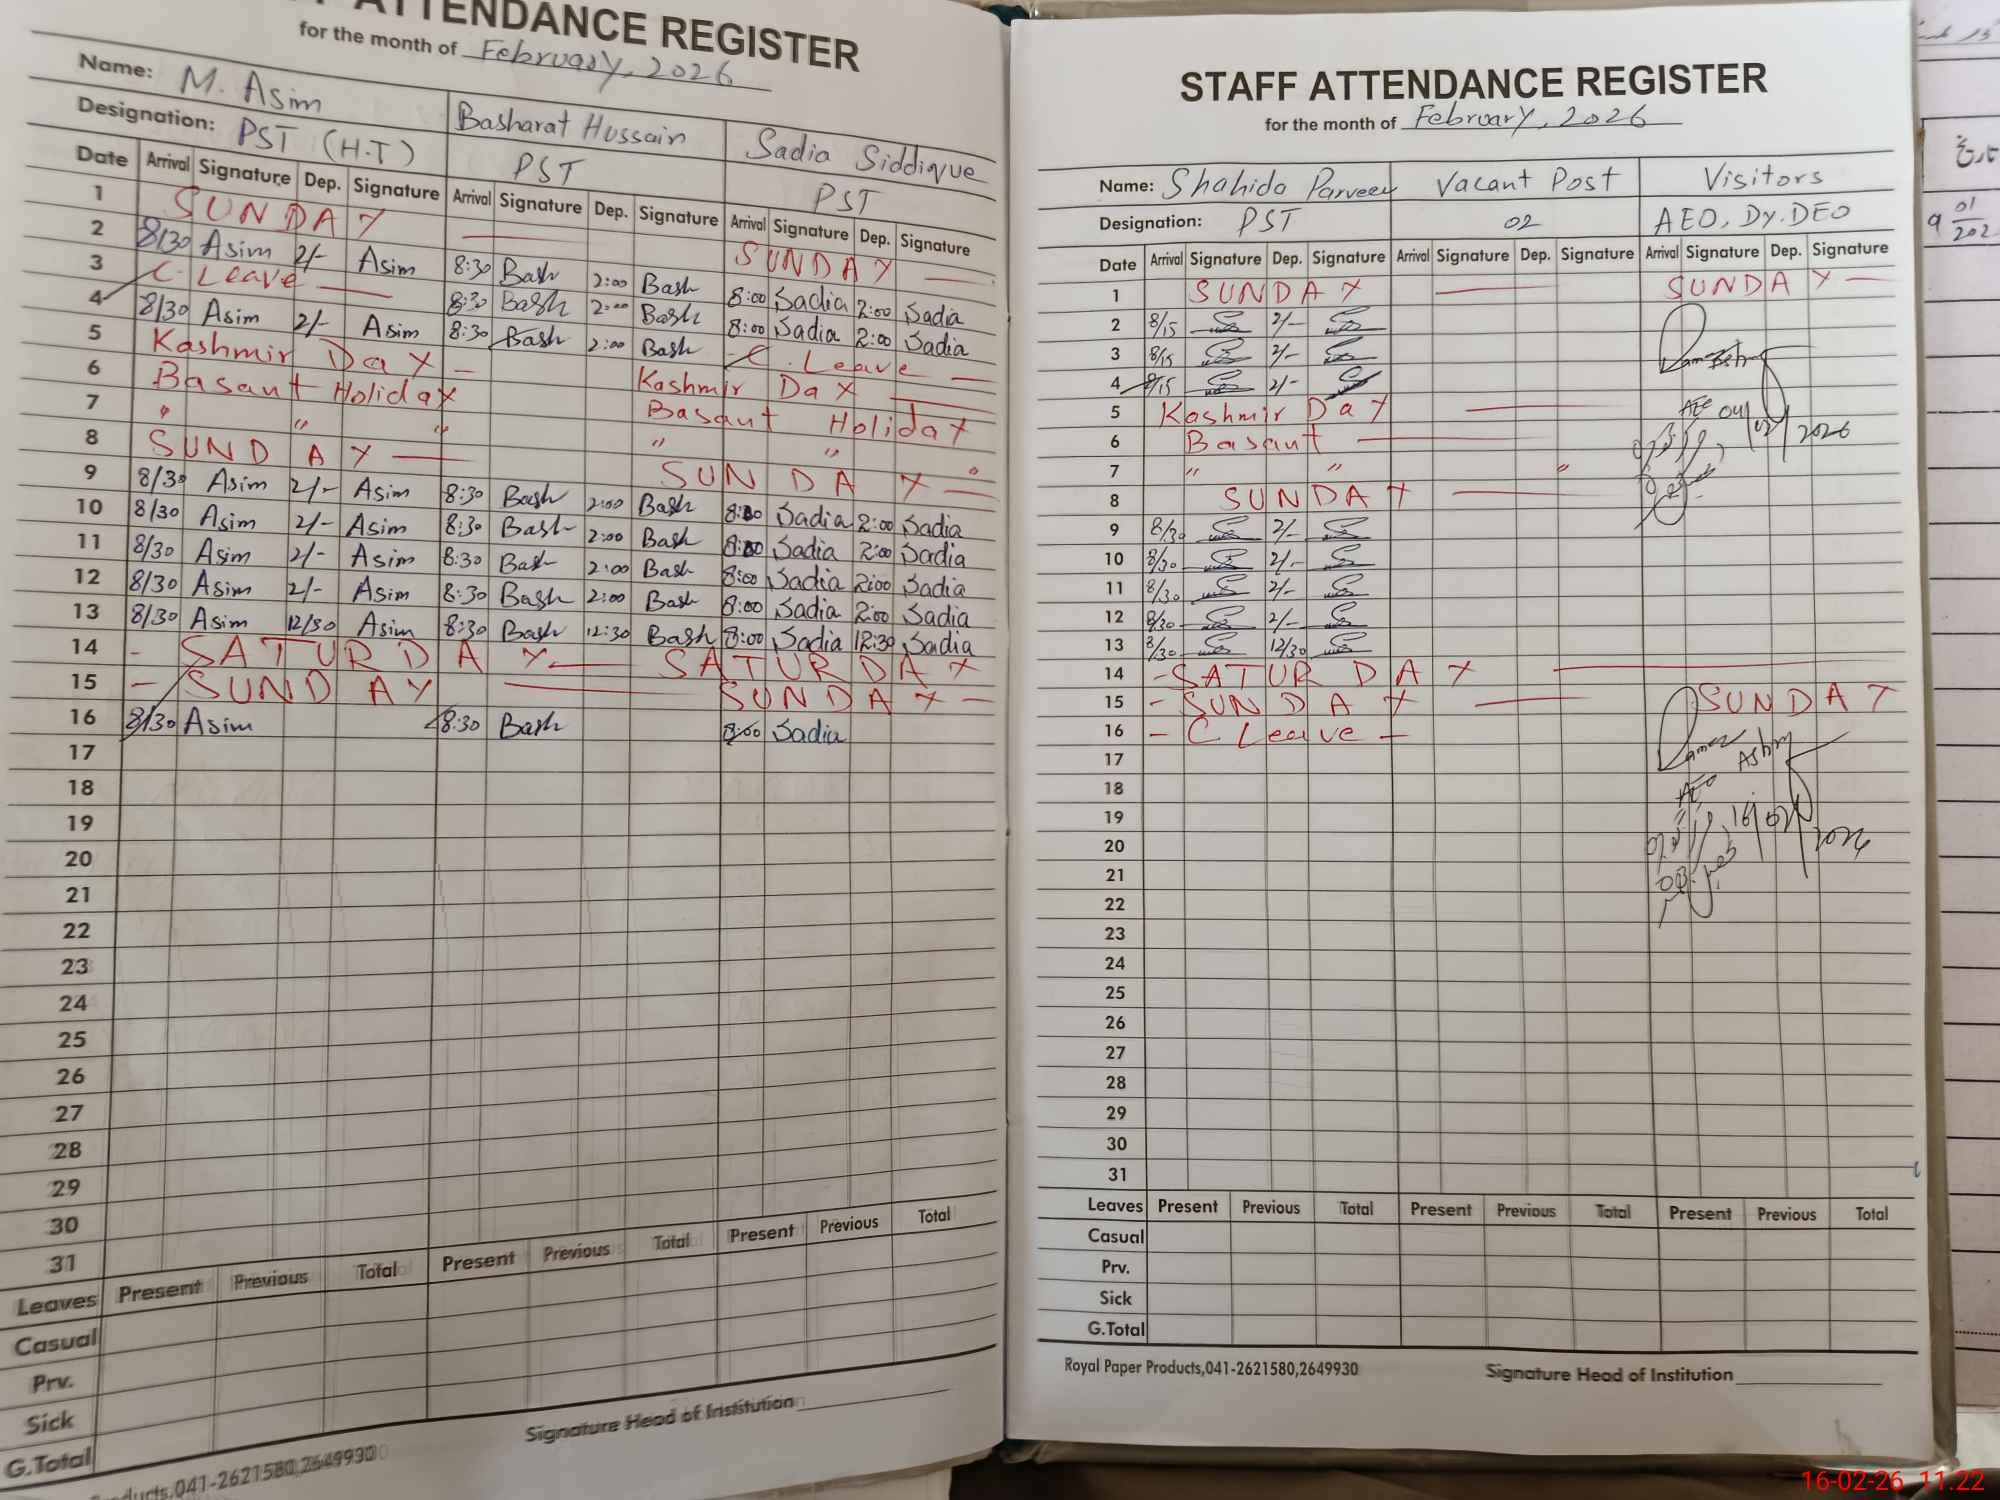 ATTENDANCE REGISTER
for the month of February, 2026
Name: M. Asim Basharat Hussain Sadia Siddique
Designation: PST (H.T) PST PST
Date Arrival Signature Dep. Signature Arrival Signature Dep. Signature Arrival Signature Dep. Signature
1 SUNDAY SUNDAY
2 8/30 Asim 2/- Asim 8:30 Bash 2:00 Bash 8:00 Sadia 2:00 Sadia
3 C. Leave 8:30 Bash 2:00 Bash 8:00 Sadia 2:00 Sadia
4 8/30 Asim 2/- Asim 8:30 Bash 2:00 Bash C. Leave
5 Kashmir Day Kashmir Day
6 Basant Holiday Basant Holiday
7 " " " " " "
8 SUNDAY SUNDAY
9 8/30 Asim 2/- Asim 8:30 Bash 2:00 Bash 8:00 Sadia 2:00 Sadia
10 8/30 Asim 2/- Asim 8:30 Bash 2:00 Bash 8:00 Sadia 2:00 Sadia
11 8/30 Asim 2/- Asim 8:30 Bash 2:00 Bash 8:00 Sadia 2:00 Sadia
12 8/30 Asim 2/- Asim 8:30 Bash 2:00 Bash 8:00 Sadia 2:00 Sadia
13 8/30 Asim 12/30 Asim 8:30 Bash 12:30 Bash 8:00 Sadia 12:30 Sadia
14 - SATURDAY SATURDAY
15 - SUNDAY SUNDAY -
16 8/30 Asim 8:30 Bash 8:00 Sadia
17
18
19
20
21
22
23
24
25
26
27
28
29
30
31
Leaves Present Previous Total Present Previous Total Present Previous Total
Casual
Prv.
Sick
G.Total
Signature Head of Institution
ducts,041-2621580,2649930
STAFF ATTENDANCE REGISTER
for the month of February, 2026
Name: Shahida Parveen Vacant Post Visitors
Designation: PST 02 AEO, Dy.DEO
Date Arrival Signature Dep. Signature Arrival Signature Dep. Signature Arrival Signature Dep. Signature
1 SUNDAY SUNDAY
2 8/15 2/-
3 8/15 2/-
4 8/15 2/-
5 Kashmir Day AEO 04/02/2026
6 Basant
7 " " "
8 SUNDAY
9 8/30 2/-
10 8/30 2/-
11 8/30 2/-
12 8/30 2/-
13 8/30 12/30
14 - SATURDAY
15 - SUNDAY SUNDAY
16 - C Leave -
17
18 AEO
19 16/02/2026
20
21
22
23
24
25
26
27
28
29
30
31
Leaves Present Previous Total Present Previous Total Present Previous Total
Casual
Prv.
Sick
G.Total
Royal Paper Products,041-2621580,2649930 Signature Head of Institution
16-02-26 11:22